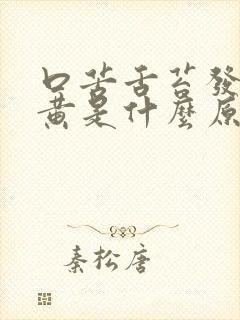 口苦舌苔發
黄是什麼原
秦松唐